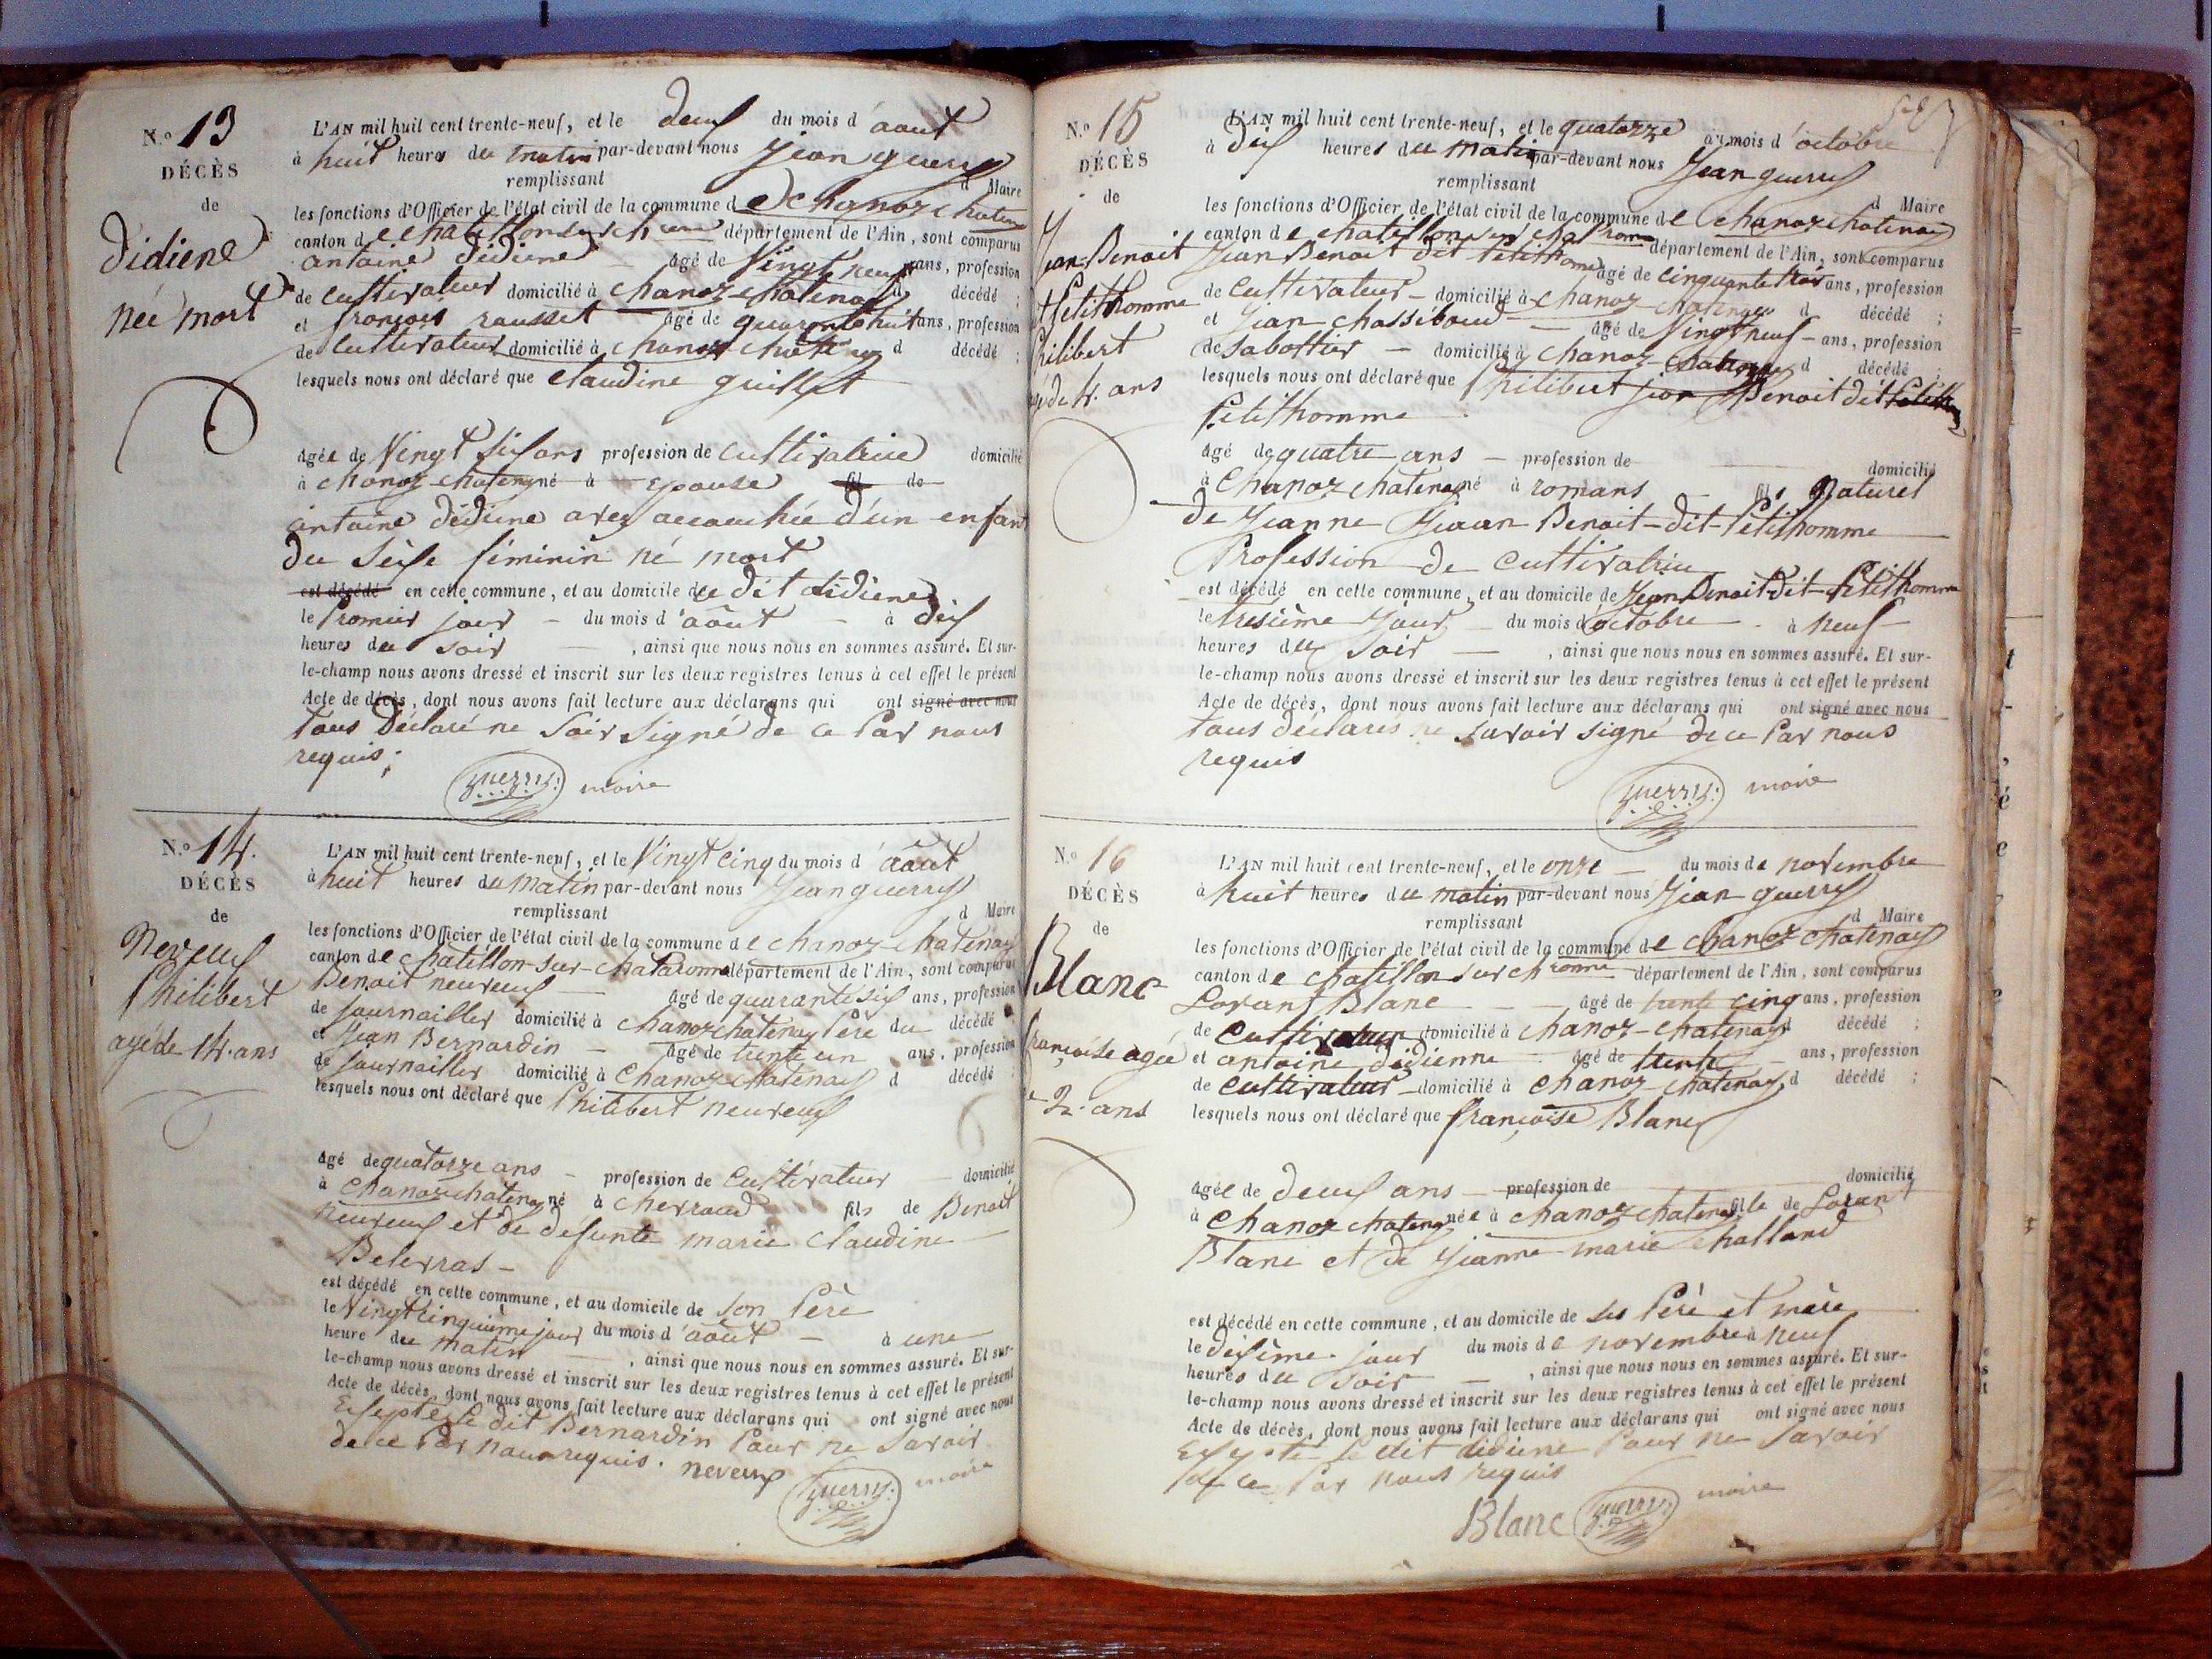 N.o 13
DÉCÈS
de
Didiene
née mort
L'AN mil huit cent trente-neuf, et le deux du mois d'août
à huit heures du matin par-devant nous Jean guerry
remplissant d Maire
les fonctions d'Officier de l'état civil de la commune de chanoz chatenay
canton de chatillon sur département de l'Ain, sont comparus
antoine didiene âgé de Vingt neuf ans, profession
de cultivateur domicilié à chanoz-chatenay d décédé ;
et françois rousset âgé de quarente huit ans, profession
de cultivateur domicilié à chanoz chatenay d décédé ;
lesquels nous ont déclaré que claudine guillet
âgée de Vingt six ans profession de cultivatrice domicilié
à chanoz-chatenay né à Epouse fil de
antoine didiene avez accouchée d'un enfant
du sexe féminin né mort
est décédé en cette commune, et au domicile du dit didiene
le Premier jour du mois d'août à dix
heures du soir , ainsi que nous nous en sommes assuré. Et sur-
le-champ nous avons dressé et inscrit sur les deux registres tenus à cet effet le présent
Acte de décès, dont nous avons fait lecture aux déclarans qui ont signé avec nous
tous Déclaré ne Savoir Signé de ce Par nous
requis.
guerry maire
N.o 14.
DÉCÈS
de
Neveux
Philibert
agé de 14. ans
L'AN mil huit cent trente-neuf, et le Vingt cinq du mois d'août
à huit heures du matin par-devant nous Jean guerry
remplissant d Maire
les fonctions d'Officier de l'état civil de la commune de chanoz-chatenay
canton de chatillon-sur-chalaronne département de l'Ain, sont comparus
Benoit neuveux âgé de quarante six ans, profession
de journallier domicilié à chanoz chatenay Père du décédé
et Jean Bernardin âgé de trente un ans, profession
de journallier domicilié à Chanoz chatenay d décédé ;
lesquels nous ont déclaré que Philibert neuveux
âgé de quatorze ans profession de Cultivateur domicilié
à chanoz chatenay né à cherroud fils de Benoit
neuveux et de défunte marie claudine
Belerras
est décédé en cette commune, et au domicile de son Père
le Vingt cinquième jour du mois d'août à une
heure du matin , ainsi que nous nous en sommes assuré. Et sur-
le-champ nous avons dressé et inscrit sur les deux registres tenus à cet effet le présent
Acte de décès, dont nous avons fait lecture aux déclarans qui ont signé avec nous
Exepté le dit Bernardin Pour ne Savoir
de ce Par nous requis. neveux guerry maire
N.o 15
DÉCÈS
de
Jean-Benoit
dit Petithomme
Philibert
agé de 4. ans
L'AN mil huit cent trente-neuf, et le quatorze du mois d'octobre
à dix heures du matin par-devant nous Jean guerry
remplissant d Maire
les fonctions d'Officier de l'état civil de la commune de chanoz chatenay
canton de chatillon sur chalaronne département de l'Ain, sont comparus
Jean Benoit dit Petithomme âgé de cinquante trois ans, profession
de Cultivateur domicilié à chanoz chatenay d décédé ;
et Jean chassiboud âgé de Vingt neuf ans, profession
de Sabottier domicilié à chanoz-chatenay d décédé ;
lesquels nous ont déclaré que Philibert jean Benoit dit
Petithomme
âgé de quatre ans profession de domicilié
à Chanoz chatenay né à romans fils Naturel
de Jeanne Jean Benoit-dit-Petithomme
Profession de Cultivatrice
est décédé en cette commune, et au domicile de Jean Benoit-dit-Petithomme
le tresième Jour du mois d'octobre à neuf
heures du Soir , ainsi que nous nous en sommes assuré. Et sur-
le-champ nous avons dressé et inscrit sur les deux registres tenus à cet effet le présent
Acte de décès, dont nous avons fait lecture aux déclarans qui ont signé avec nous
tous déclarés ne savoir signé de ce Par nous
requis
guerry maire
N.o 16
DÉCÈS
de
Blanc
françoise agée
de 2. ans
L'AN mil huit cent trente-neuf, et le onze du mois de novembre
à huit heures du matin par-devant nous Jean guerry
remplissant d Maire
les fonctions d'Officier de l'état civil de la commune de chanoz chatenay
canton de chatillon sur département de l'Ain, sont comparus
Loran Blanc âgé de trente cinq ans, profession
de Cultivateur domicilié à chanoz-chatenay d décédé ;
et antoine didienne âgé de trente ans, profession
de cultivateur domicilié à chanoz chatenay d décédé ;
lesquels nous ont déclaré que françoise Blanc
âgée de deux ans profession de domicilié
à Chanoz chatenay née à chanoz chatenay fille de Loran
Blanc et de Jeanne-marie challand
est décédé en cette commune, et au domicile de ses Père et mère
le dixième jour du mois de novembre à neuf
heures du soir , ainsi que nous nous en sommes assuré. Et sur-
le-champ nous avons dressé et inscrit sur les deux registres tenus à cet effet le présent
Acte de décès, dont nous avons fait lecture aux déclarans qui ont signé avec nous
Exepté le dit didiene Pour ne Savoir
de ce Par nous requis
Blanc guerry maire